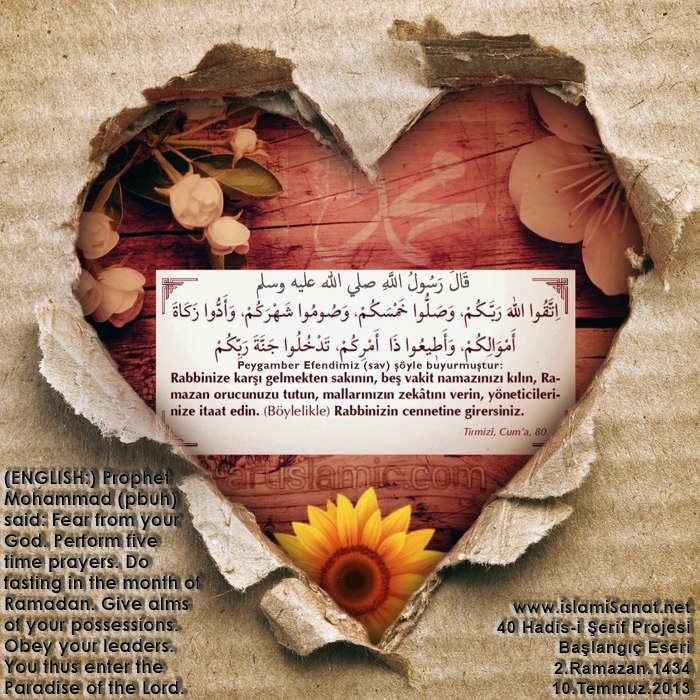 محمد
قَالَ رَسُولُ اللَّهِ صلي الله عليه وسلم
اِتَّقُوا اللهَ رَبَّكُمْ، وَصَلُّوا خَمْسَكُمْ، وَصُومُوا شَهْرَكُمْ، وَأَدُّوا زَكَاةَ
أَمْوَالِكُمْ، وَأَطِيعُوا ذَا أَمْرِكُمْ، تَدْخُلُوا جَنَّةَ رَبِّكُمْ
Peygamber Efendimiz (sav) şöyle buyurmuştur:
Rabbinize karşı gelmekten sakının, beş vakit namazınızı kılın, Ra-
mazan orucunuzu tutun, mallarınızın zekâtını verin, yöneticileri-
nize itaat edin. (Böylelikle) Rabbinizin cennetine girersiniz.
Tirmizî, Cum'a, 80.
artislamic.com
(ENGLISH:) Prophet
Mohammad (pbuh)
said: Fear from your
God. Perform five
time prayers. Do
fasting in the month of
Ramadan. Give alms
of your possessions.
Obey your leaders.
You thus enter the
Paradise of the Lord.
www.islamiSanat.net
40 Hadis-i Şerif Projesi
Başlangıç Eseri
2.Ramazan.1434
10.Temmuz.2013